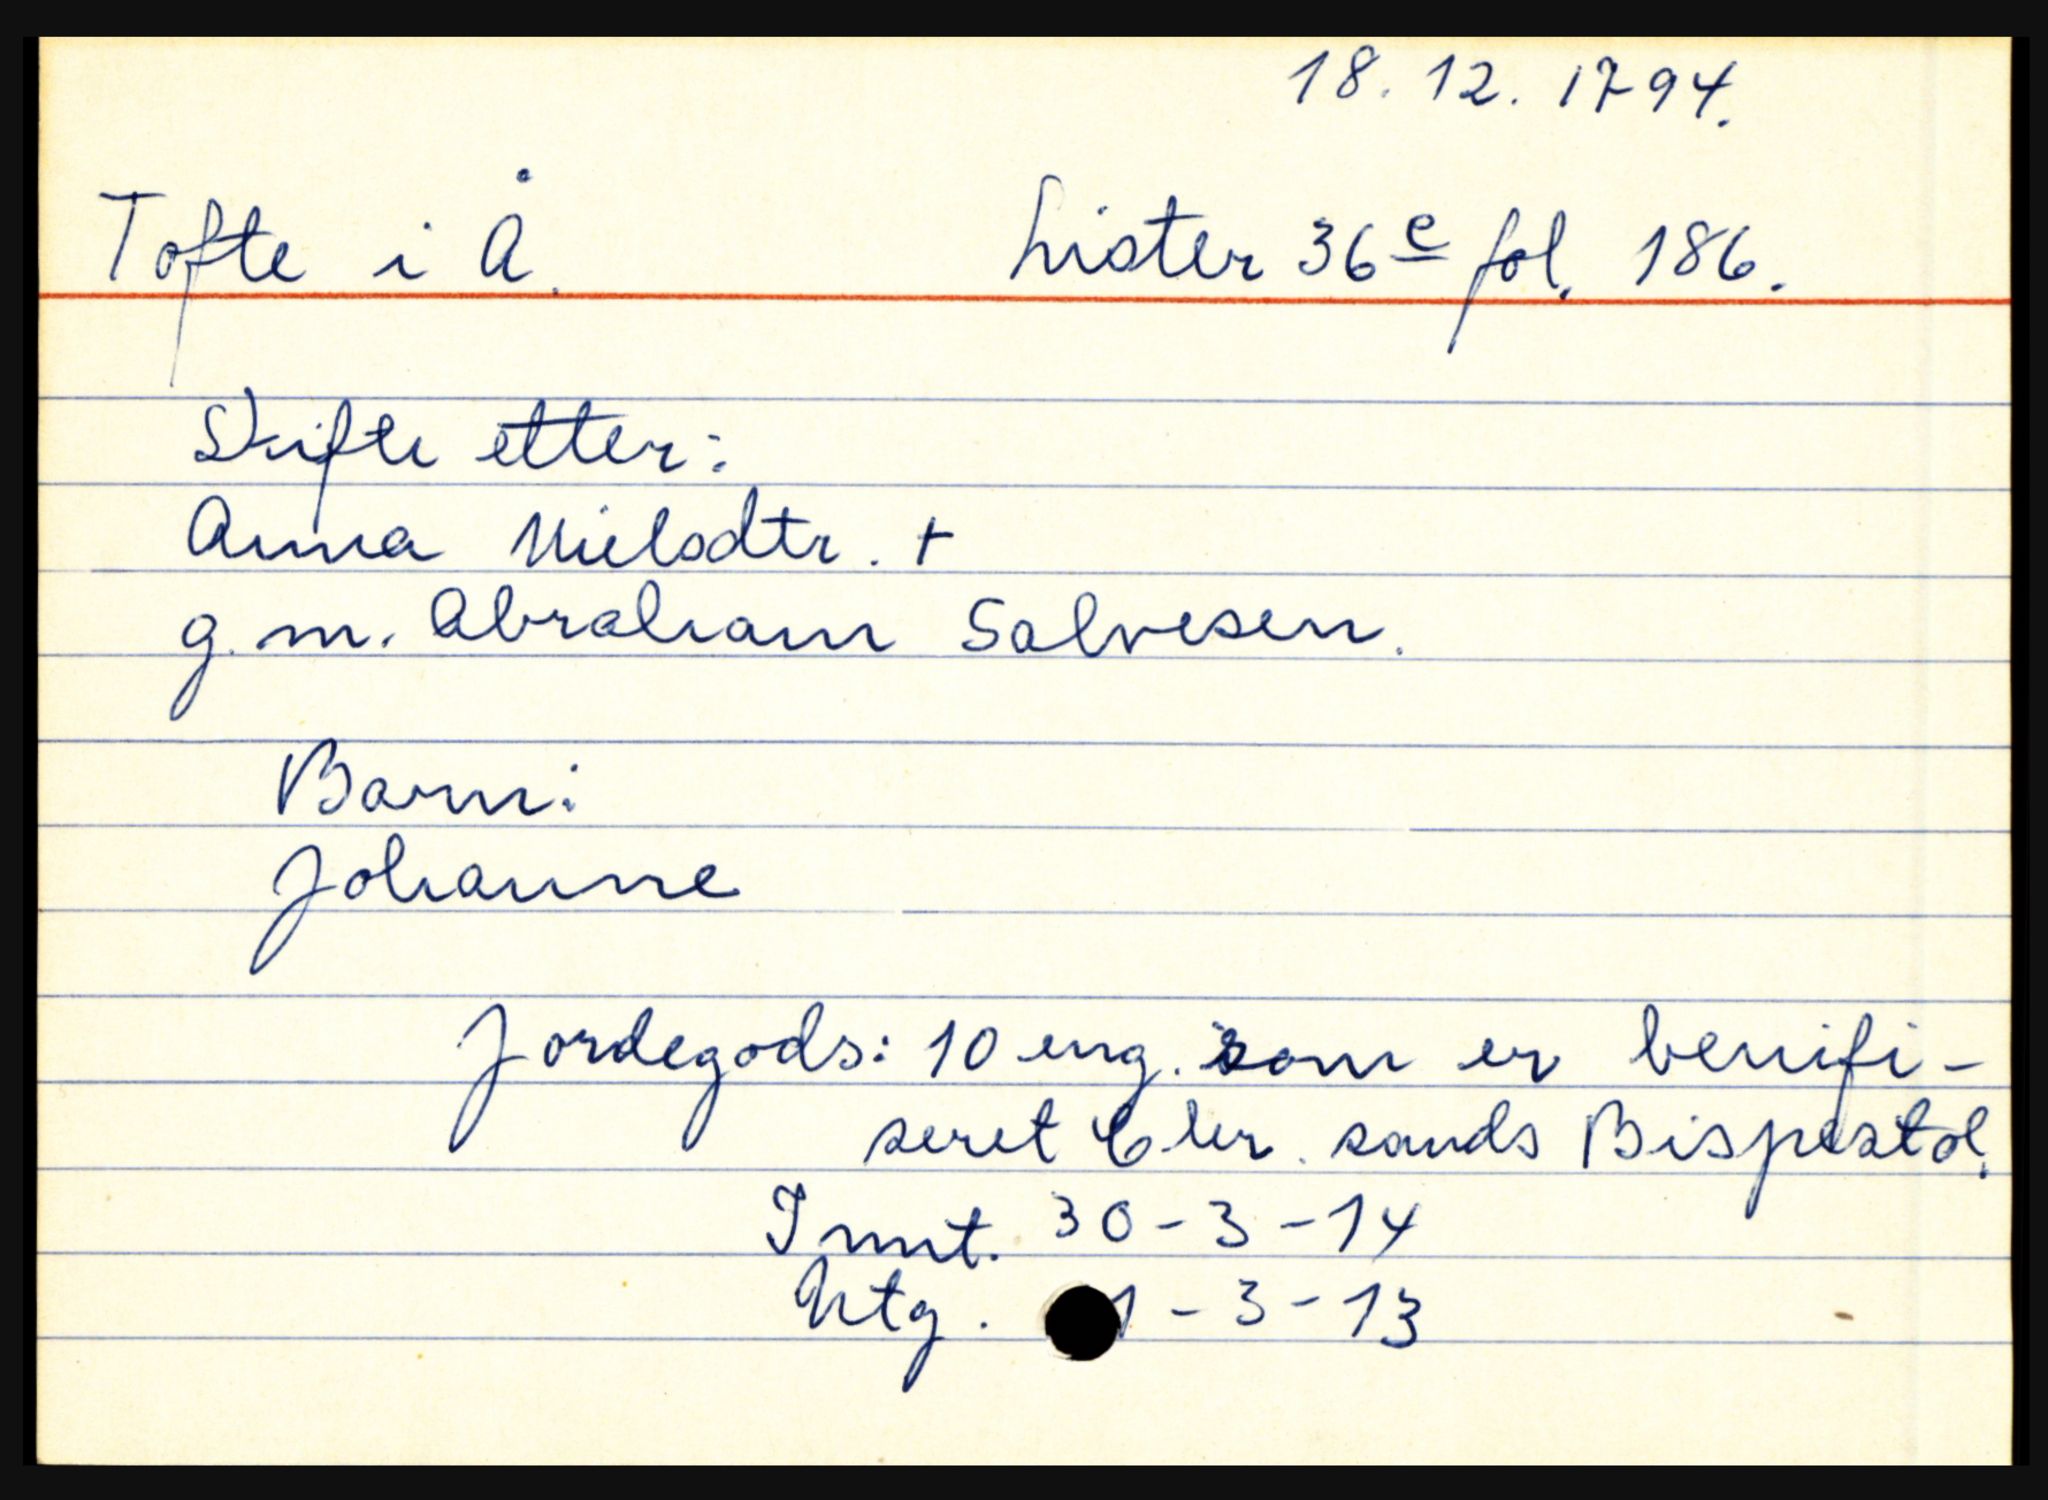 18.12.1794.
Tofte i Å. Lister 36e fol. 186.
Skifte etter:
Anna Nielsdtr. +
g.m. Abraham Salvesen.
Barn:
Johanne
Jordegods: 10 eng. som er benifi-
seret Chr. sands Bispestol.
Innt. 30-3-14
Utg. 1-3-13